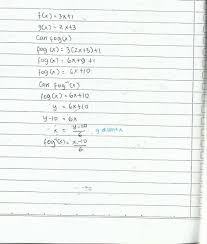 f(x) = 3x+1
g(x) = 2x+3
Cari fog(x)
fog(x) = 3(2x+3)+1
fog(x) = 6x+9+1
fog(x) = 6x+10
Cari fog⁻¹(x)
fog(x) = 6x+10
y = 6x+10
y-10 = 6x
x = y-10/6
fog⁻¹(x) = x-10/6